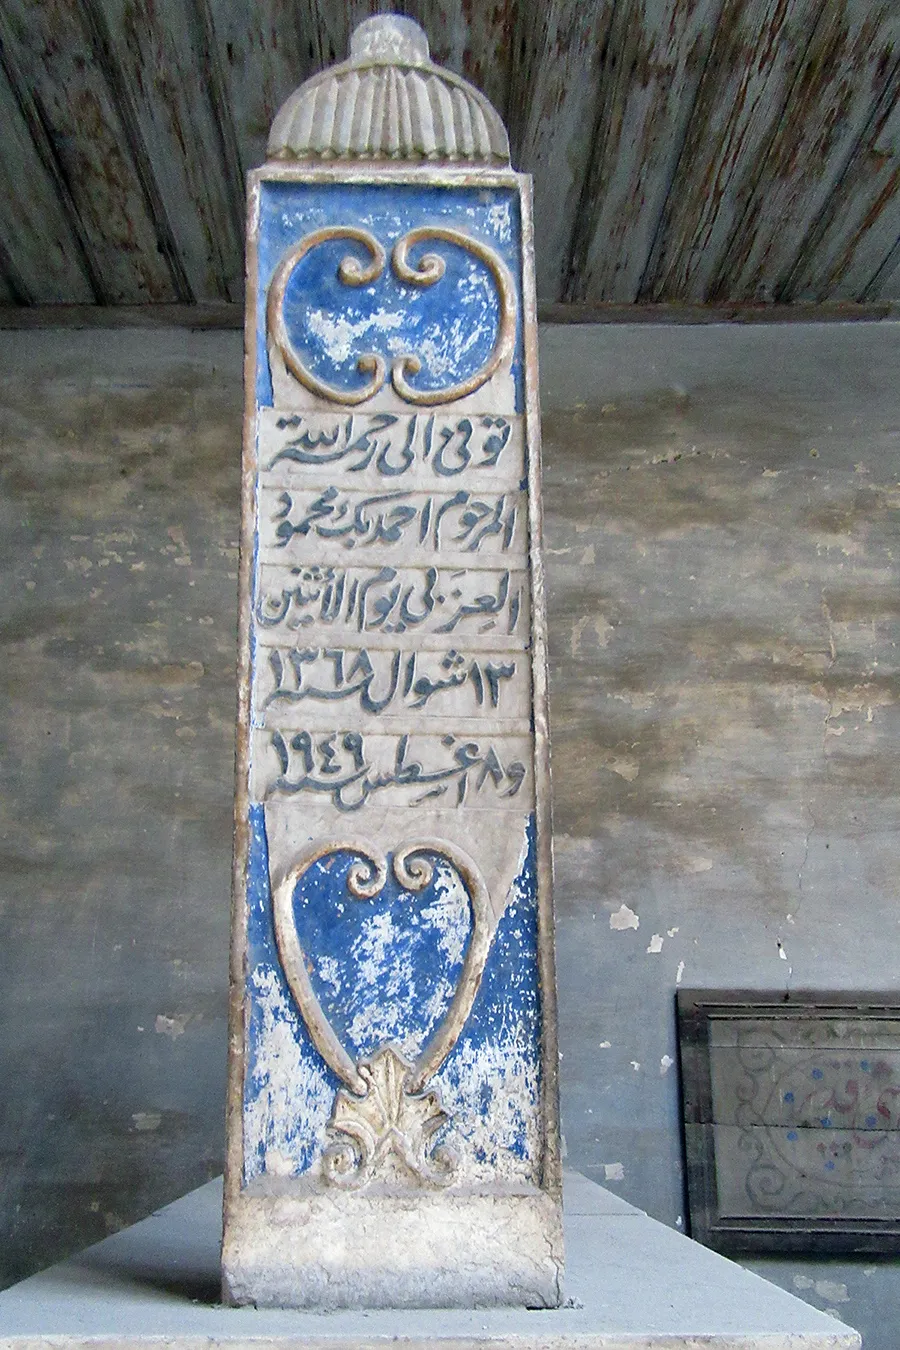 توفي الى رحمة الله
المرحوم احمد بك محمود
العِزَبي يوم الأثنين
١٣ شوال سنة ١٣٦٨
و ٨ اغسطس سنة ١٩٤٩